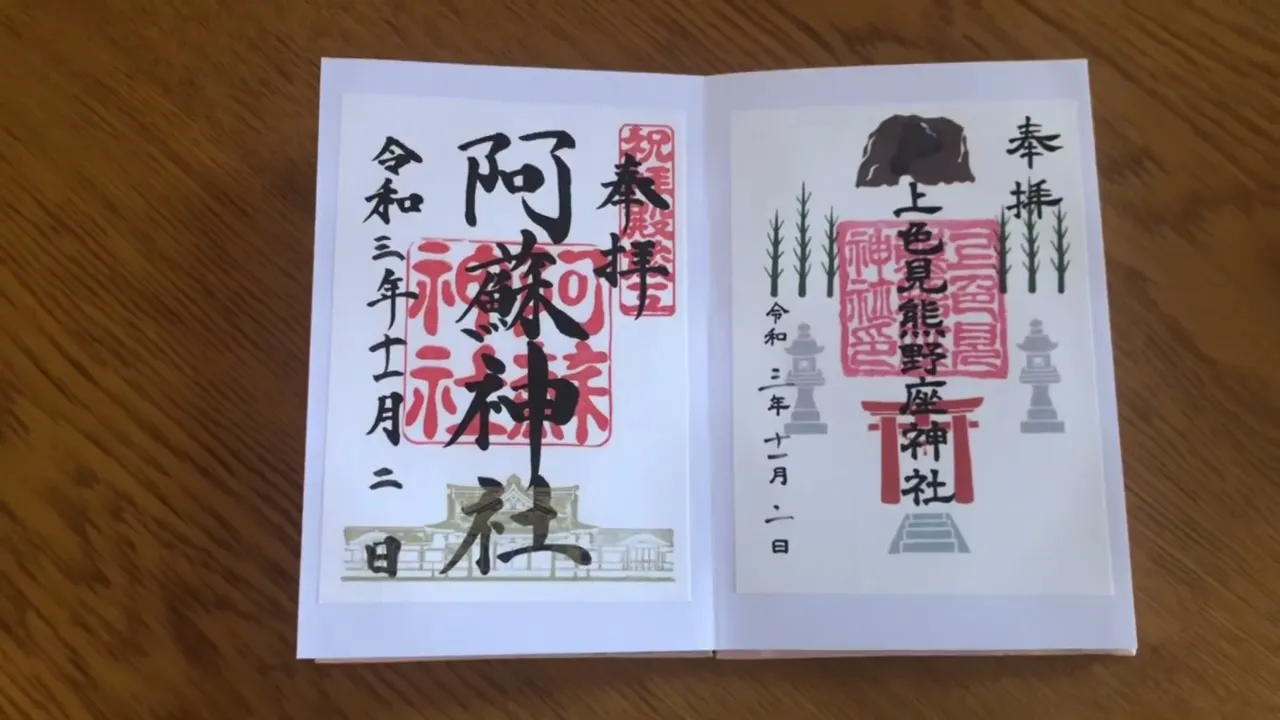 祝拝殿竣工
奉拝
阿蘇神社
阿蘇神社
令和三年十一月二日
奉拝
上色見熊野座神社
上色見
神社印
令和三年十一月二日